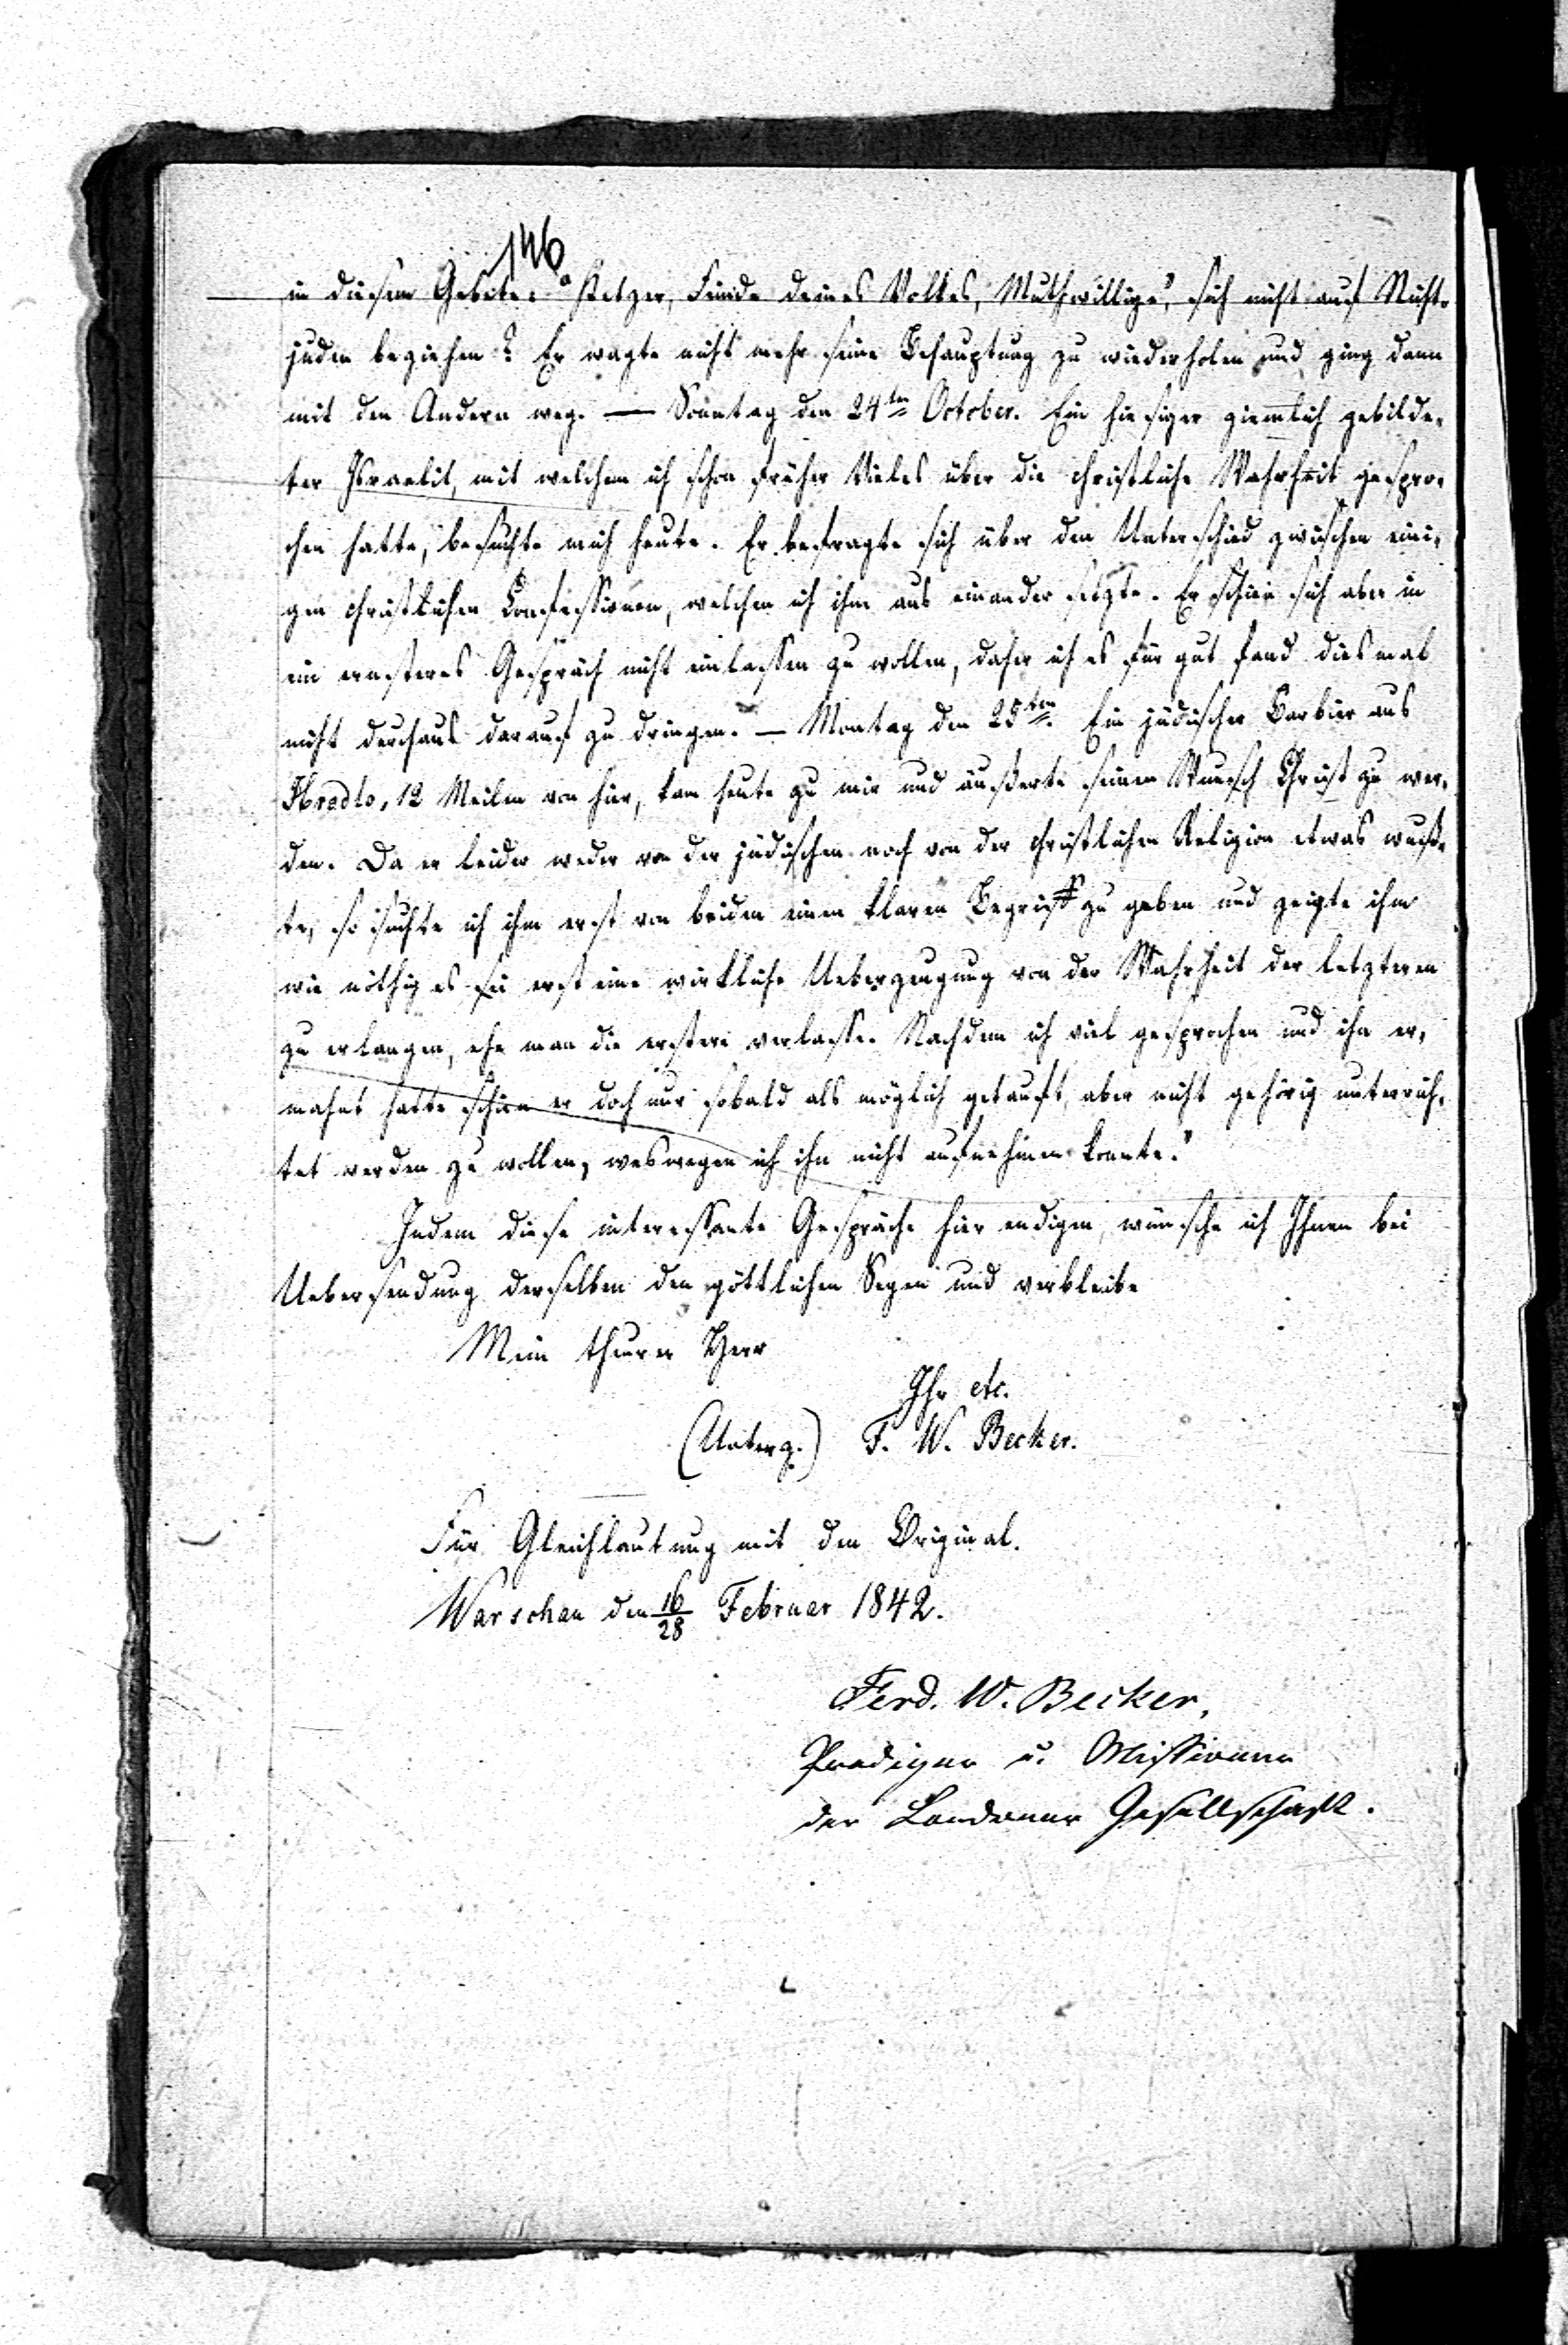 146
in diesem Gebete: "Ketzer, Feinde deines Volkes, Muthwillige", sich nicht auf Nicht-
juden beziehen? Er wagte nicht mehr seine Behauptung zu wiederholen und ging dann
mit den Andern weg. — Sonntag den 24ten October. Ein hiesiger ziemlich gebilde-
ter Israelit, mit welchem ich schon früher Vieles über die christliche Wahrheit gespro-
chen hatte, besuchte mich heute. Er befragte sich über den Unterschied zwischen eini-
gen christlichen Confessionen, welchen ich ihm aus einander setzte. Er schien sich aber in
ein ernsteres Gespräch nicht einlassen zu wollen, daher ich es für gut fand diesmal
nicht durchaus darauf zu dringen. — Montag den 25ten. Ein jüdischer Barbier aus
Hrodlo, 12 Meilen von hier, kam heute zu mir und äußerte seinen Wunsch Christ zu wer-
den. Da er leider weder von der jüdischen noch von der christlichen Religion etwas wuß-
te, so suchte ich ihm erst von beiden einen klaren Begriff zu geben und zeigte ihm
wie nöthig es sei erst eine wirkliche Ueberzeugung von der Wahrheit der letzteren
zu erlangen, ehe man die erstere verlasse. Nachdem ich viel gesprochen und ihn er-
mahnt hatte schien er doch nur sobald als möglich getauft, aber nicht gehörig unterrich-
tet werden zu wollen, weswegen ich ihn nicht aufnehmen konnte."
Indem diese interessante Gespräche hier endigen, wünsche ich Ihnen bei
Uebersendung derselben den göttlichen Segen und verbleibe
Mein theurer Herr
Ihr etc.
(Unterz.) F. W. Becker.
Für Gleichlautung mit dem Original.
Warschau den 16/28 Februar 1842.
Ferd. W. Becker,
Prediger u. Missionar
der Londoner Gesellschaft.